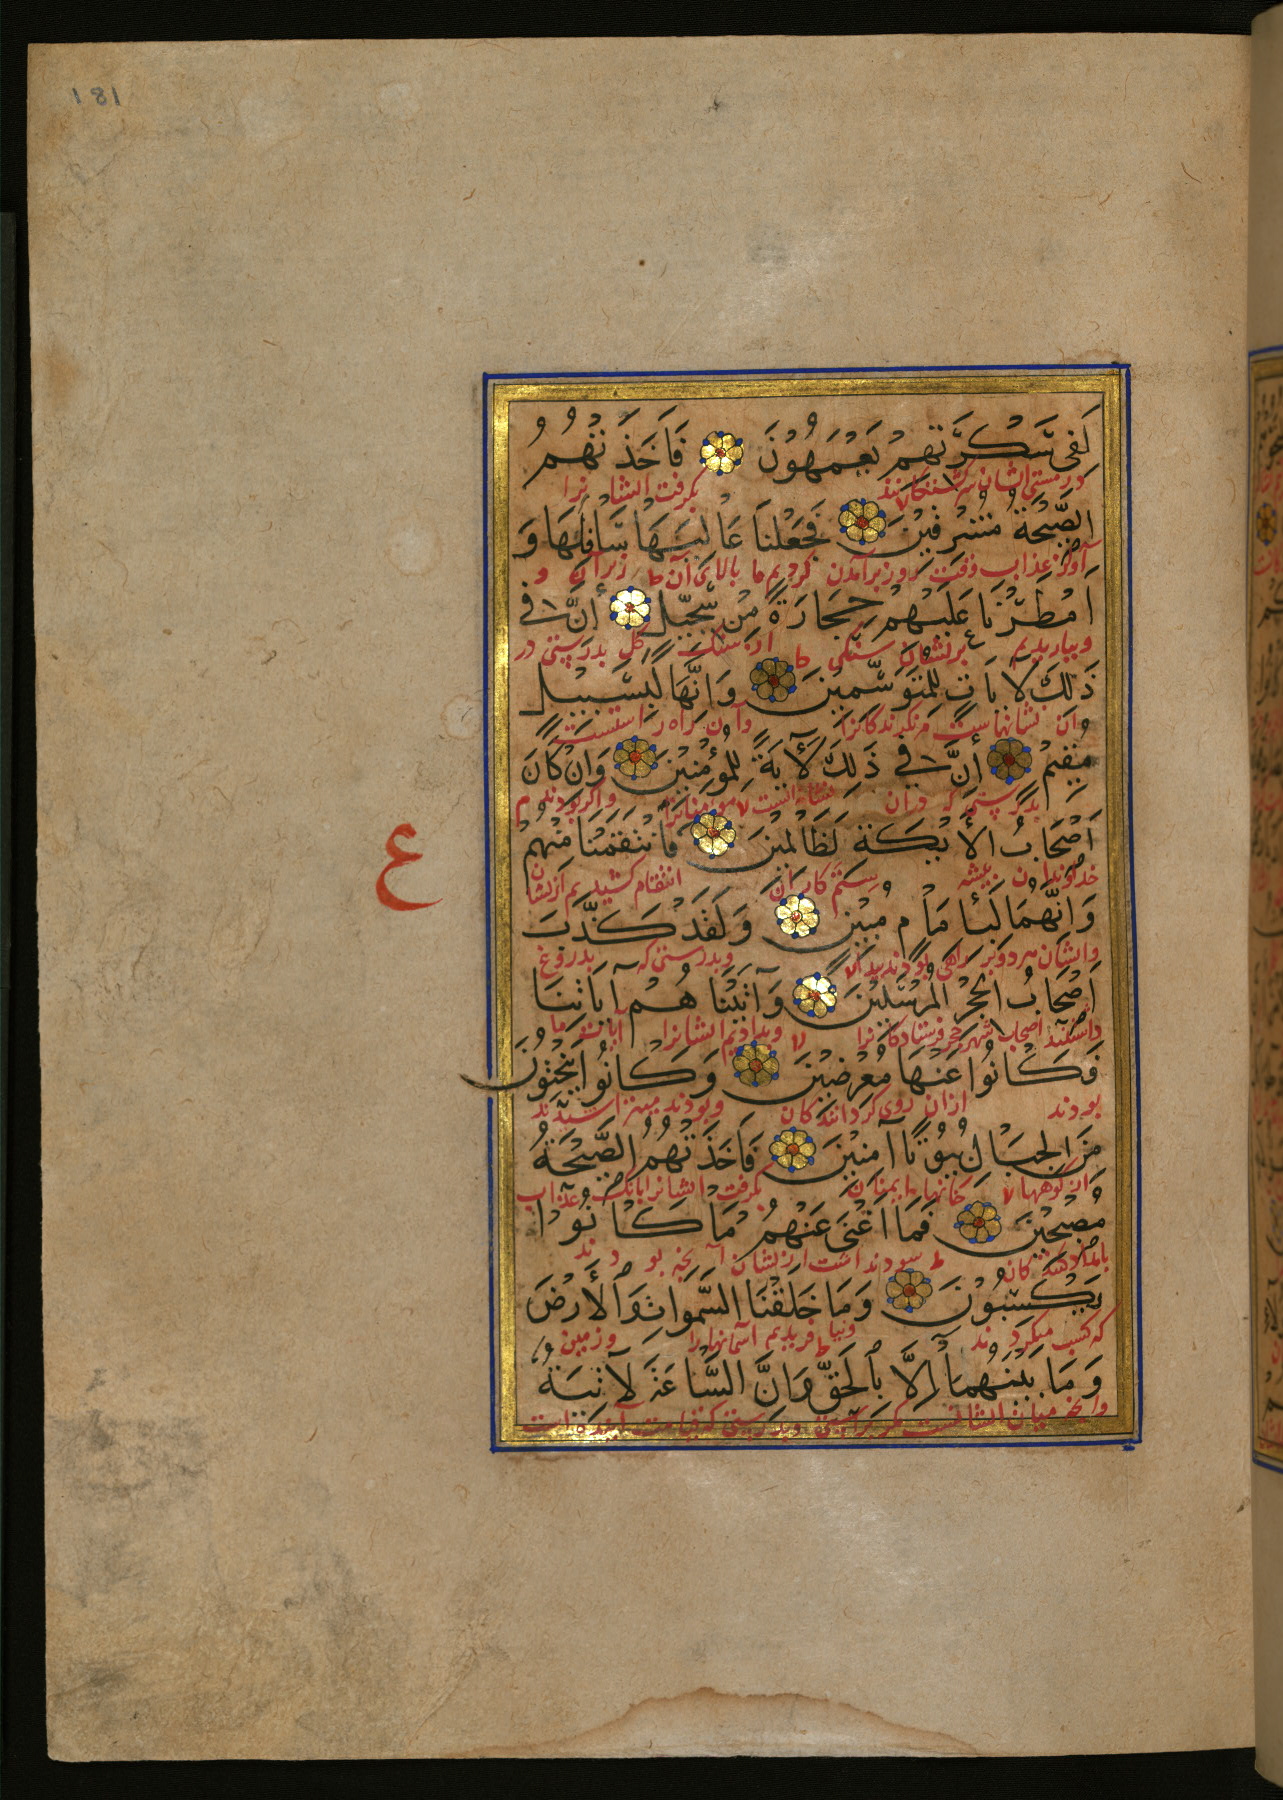 181
لَفِى سَكْرَتِهِمْ يَعْمَهُونَ فَاَخَذَتْهُمُ
در مستی ایشان سرگشته‌کانند بگرفت ایشا نرا
الصَّيْحَةُ مُشْرِقِينَ فَجَعَلْنَا عَالِيَهَا سَافِلَهَا وَ
آواز عذاب وقت روز برآمدن کردیم ما بالای آن زیر آن و
اَمْطَرْنَا عَلَيْهِمْ حِجَارَةً مِنْ سِجِّيلٍ اِنَّ فِى
و ببارید یم بر ایشان سنگی از سنگ گل بدرستی در
ذَلِكَ لَاٰيَاتٍ لِلْمُتَوَسِّمِينَ وَاِنَّهَا لَبِسَبِيلٍ
آن نشانهاست مر نگرندکانرا و آن براه راستست
مُقِيمٍ اِنَّ فِى ذَلِكَ لَآيَةً لِلْمُؤْمِنِينَ وَاِنْ كَانَ
بدرستی که در آن نشانیست مؤمنانرا و اگر بودند
اَصْحَابُ الْأَيْكَةِ لَظَالِمِينَ فَانْتَقَمْنَا مِنْهُمْ
خداوندان بیشه ستم کاران انتقام کشیدیم ازیشان
وَاِنَّهُمَا لَبِاِمَامٍ مُبِينٍ وَلَقَدْ كَذَّبَ
وایشان هر دو بر راهی بودند پیدا و بدرستی که بدروغ
اَصْحَابُ الْحِجْرِ الْمُرْسَلِينَ وَآتَيْنَا هُمْ آيَاتِنَا
داشتند اصحاب شهر حجر فرستادکا نرا و بدادیم ایشا نرا آیات ما
فَكَانُوا عَنْهَا مُعْرِضِينَ وَكَانُوا يَنْحِتُونَ
بودند ازان روی گردانندکان و بودند میتراشیدند
مِنَ الْجِبَالِ بُيُوتًا آمِنِينَ فَاَخَذَتْهُمُ الصَّيْحَةُ
از کوهها خانها ایمنان بگرفت ایشانرا بانگ عذاب
مُصْبِحِينَ فَمَا اَغْنَى عَنْهُمْ مَا كَانُوا
بامداد کنندکان سود نداشت ازیشان آنچه بو دند
يَكْسِبُونَ وَمَا خَلَقْنَا السَّمٰوَاتِ وَالْأَرْضَ
که کسب میکردند و نیا فریدیم آسمانها را و زمین
وَمَا بَيْنَهُمَا اِلَّا بِالْحَقِّ وَاِنَّ السَّاعَةَ لَآتِيَةٌ
وآنچه میان ایشانست مگر براستی و بدرستی که قیامت آینده است
ع